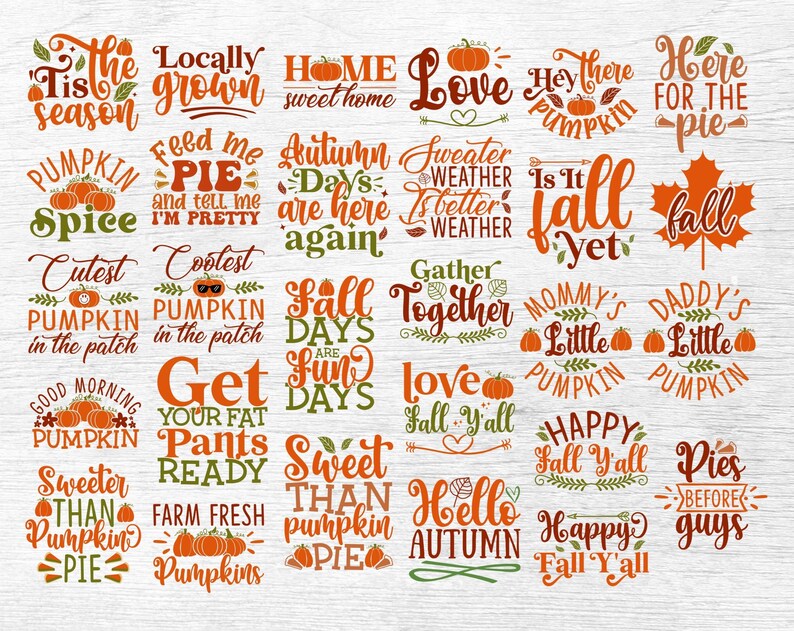 'Tis the
season
Locally
grown
HOME
sweet home
Love
Hey there
pumpkin
Here
FOR THE
pie
PUMPKIN
Spice
Feed Me
PIE
and tell me
I'M PRETTY
Autumn
Days
are here
again
Sweater
WEATHER
Is better
WEATHER
Is It
fall
yet
fall
Cutest
PUMPKIN
in the patch
Coolest
PUMPKIN
in the patch
Fall
DAYS
ARE
Fun
DAYS
Gather
Together
MOMMY'S
Little
PUMPKIN
DADDY'S
Little
PUMPKIN
GOOD MORNING
PUMPKIN
Get
YOUR FAT
Pants
READY
love
Fall Y'all
HAPPY
Fall Y'all
Pies
BEFORE
guys
Sweeter
THAN
Pumpkin
PIE
FARM FRESH
Pumpkins
Sweet
THAN
pumpkin
PIE
Hello
AUTUMN
Happy
Fall Y'all